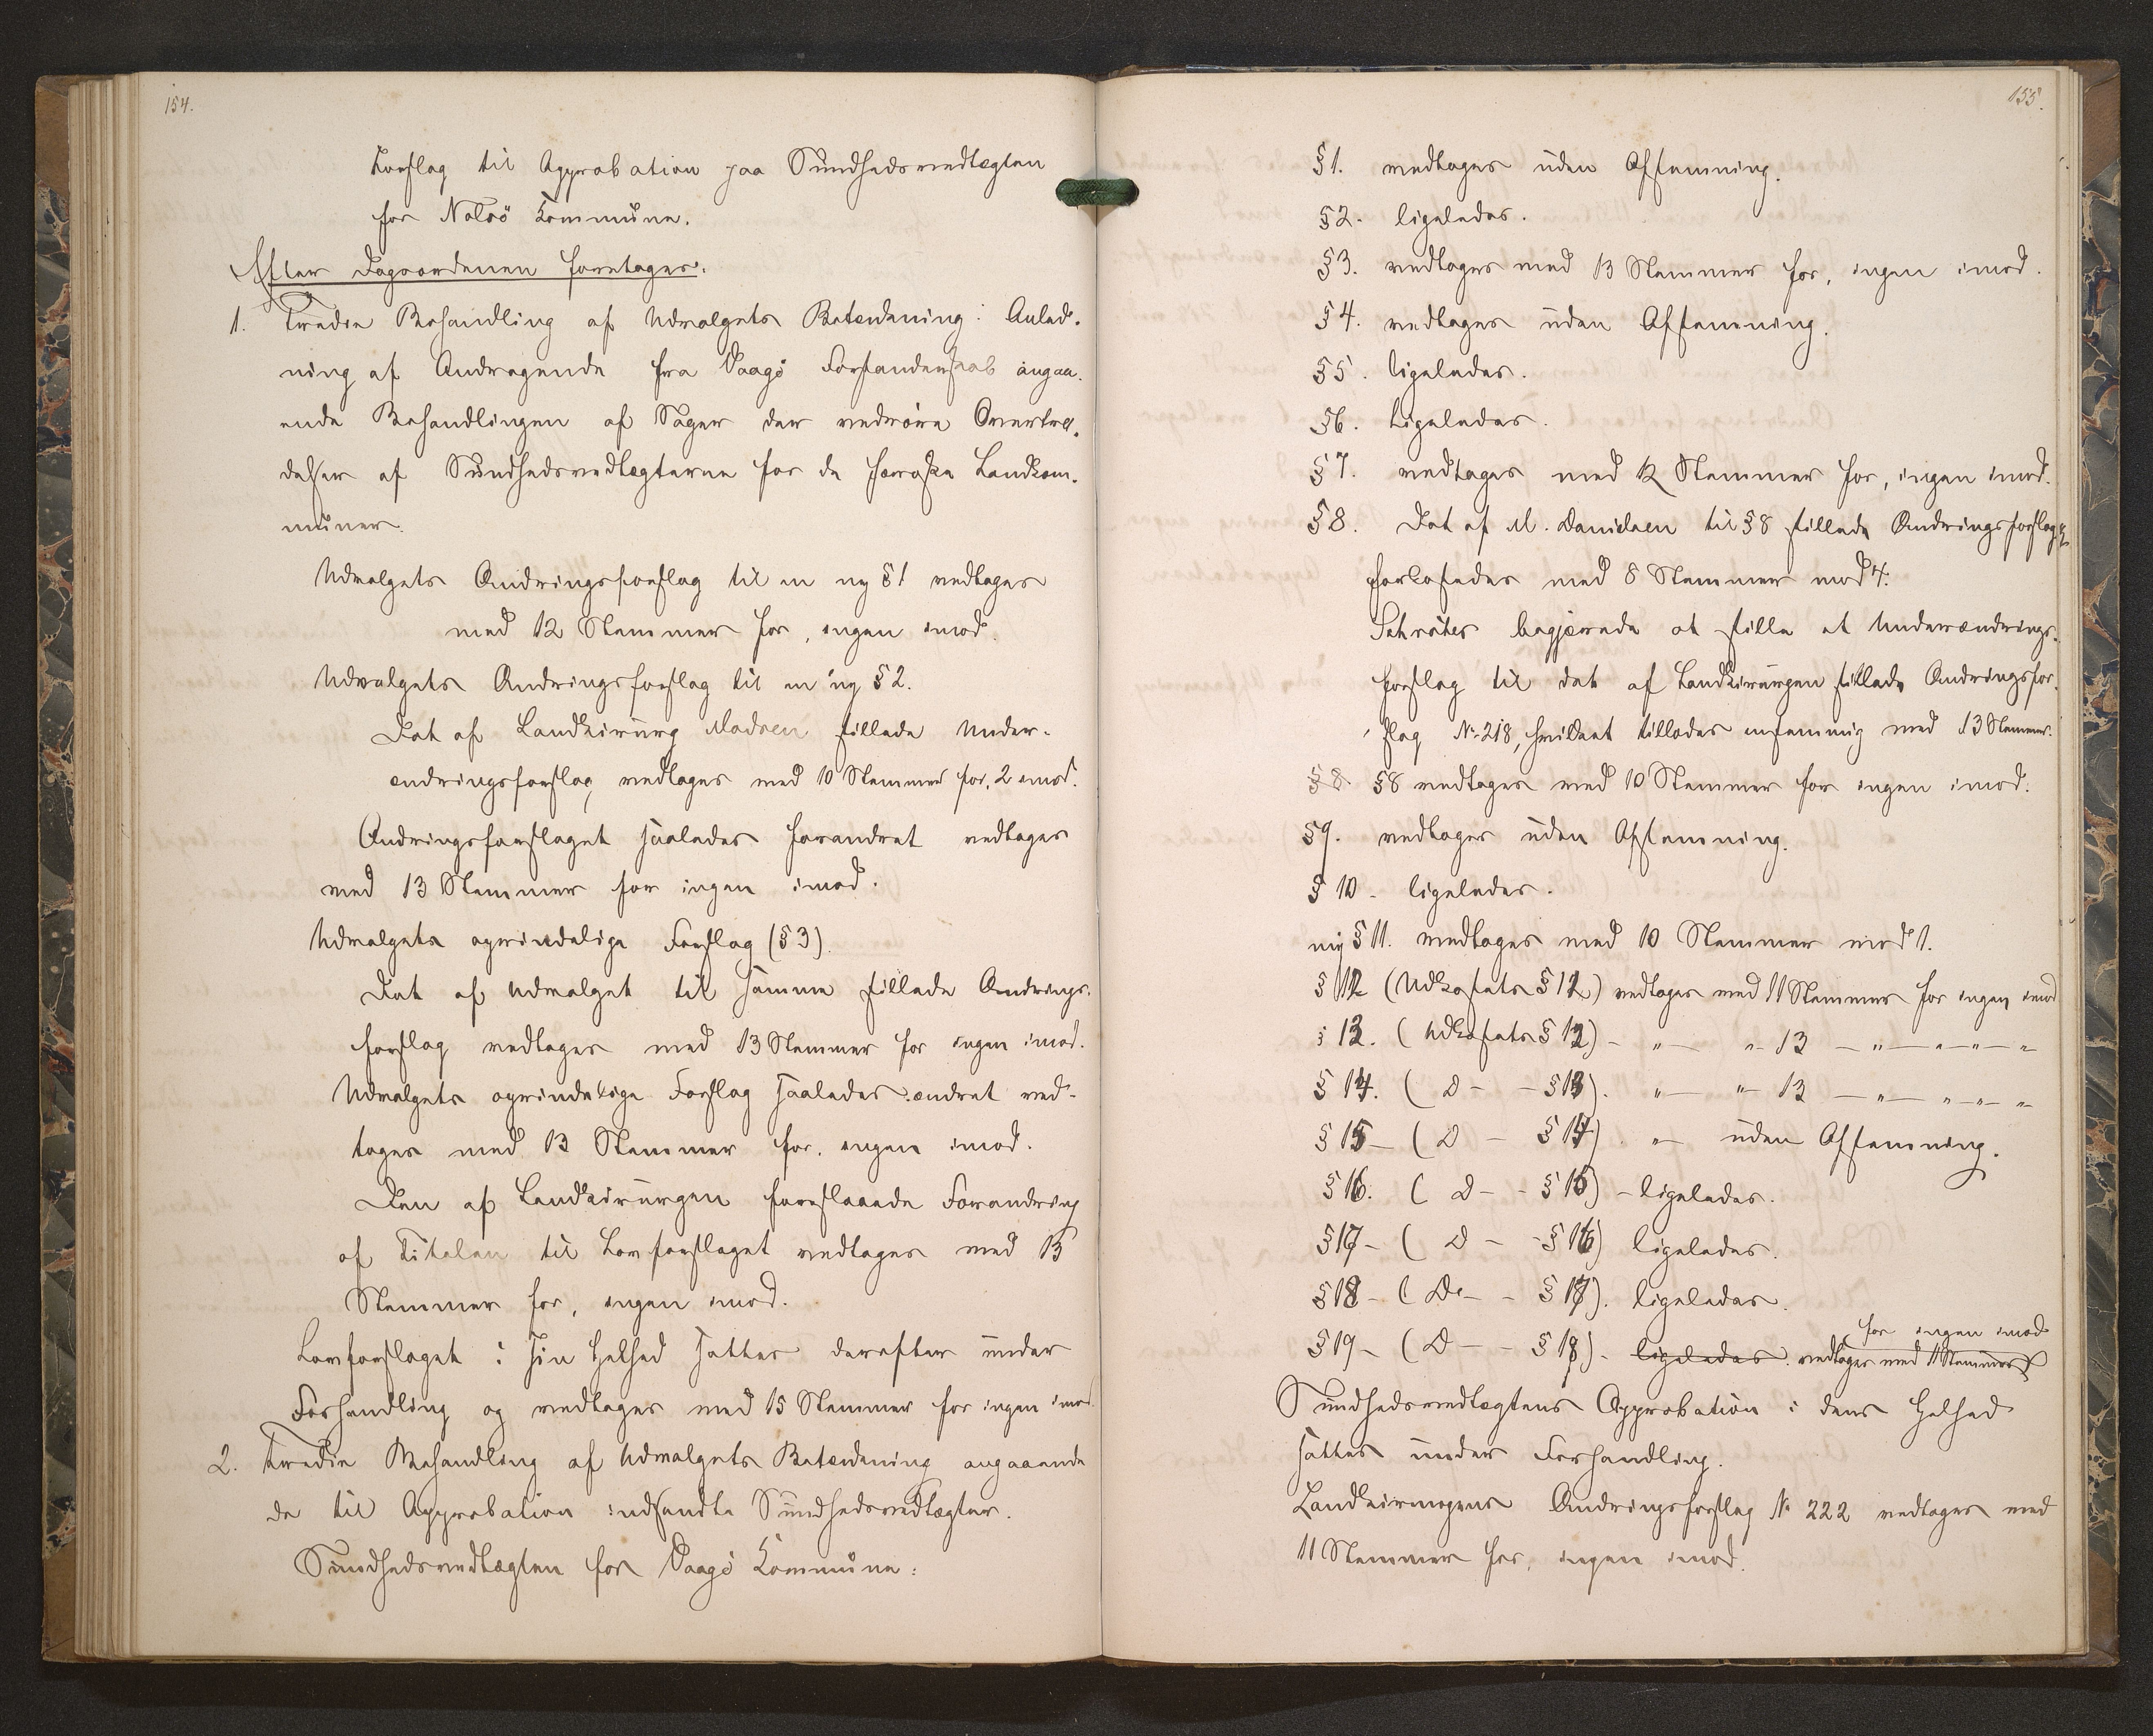 154.
Forslag til Approbation paa Sundhedsvedtægten
for Nolsö Kommune.
Efter Dagsordenen foretages:
1. Tredie Behandling af Udvalgets Betænkning i Anled-
ning af Andragende fra Vaagö Forstanderskab angaa-
ende Behandlingen af Sager der vedröre Overtræ-
delser af Sundhedsvedtægterne for de færøske Landkom-
muner.
Udvalgets Ændringsforslag til en ny § 1 vedtages
med 12 Stemmer for, ingen imod.
Udvalgets Ændringsforslag til en ny § 2.
Det af Landkirurg Madsen stillede Under-
ændringsforslag vedtages med 10 Stemmer for, 2 imod.
Ændringsforslaget saaledes forandret vedtages
med 13 Stemmer for ingen imod.
Udvalgets oprindelige Forslag (§ 3).
Det af Udvalget til samme stillede Ændrings-
forslag vedtages med 13 Stemmer for ingen imod.
Udvalgets oprindelige Forslag saaledes ændret ved-
tages med 13 Stemmer for, ingen imod.
Den af Landkirurgen foreslaaede Forandring
af Titelen til Lovforslaget vedtages med 13
Stemmer for, ingen imod.
Lovforslaget i sin Helhed sattes derefter under
Forhandling og vedtages med 15 Stemmer for ingen imod.
2. Tredie Behandling af Udvalgets Betænkning angaaende
de til Approbation indsendte Sundhedsvedtægter.
Sundhedsvedtægten for Vaagö Kommune:
155.
§ 1. vedtages uden Afstemning.
§ 2. ligeledes.
§ 3. vedtages med 13 Stemmer for, ingen imod.
§ 4. vedtages uden Afstemning.
§ 5. ligeledes.
§ 6. ligeledes.
§ 7. vedtages med 12 Stemmer for, ingen imod.
§ 8. Det af M. Danielsen til § 8 stillede Ændringsforslag
forkastedes med 8 Stemmer mod 4.
Schröter begjærede at stille et Underændrings-
forslag til det af Landkirurgen stillede Ændringsfor-
slag № 218, hvilket tillodes enstemmig med 13 Stemmer.
§ 8. § 8 vedtages med 10 Stemmer for ingen imod.
§ 9. vedtages uden Afstemning.
§ 10 - ligeledes.
ny § 11. vedtages med 10 Stemmer mod 1.
§ 12 (Udkastets § 11) vedtages med 11 Stemmer for ingen imod
§ 13. (Udkastets § 12) - „ — „ - 13 — „ — „ — „ — „
§ 14. ( D - - § 13). „ — „ 13 — „ — „ — „ — „
§ 15 - ( D - § 14) „ — uden Afstemning.
§ 16. ( D - - § 15) - ligeledes.
§ 17 - ( D - - § 16) ligeledes.
§ 18 - ( Do - - § 17). ligeledes.
for ingen imod
§ 19 - ( D - - § 18). ligeledes. vedtages med 11 Stemmer
Sundhedsvedtægtens Approbation i dens Helhed
sattes under Forhandling.
Landkirurgens Ændringsforslag № 222 vedtages med
11 Stemmer for, ingen imod.